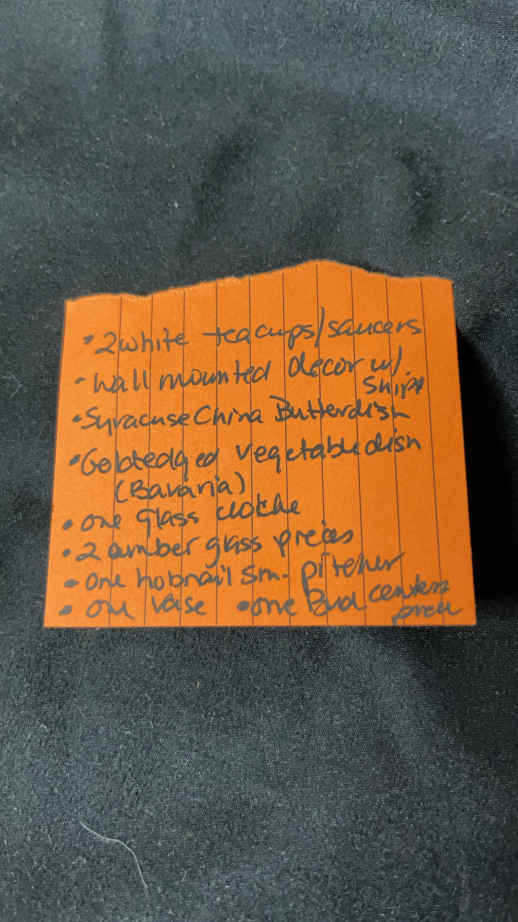 • 2 white teacups/saucers
• Wall mounted decor w/
Ships
• Syracuse China Butterdish
• Gold edged vegetable dish
(Bavaria)
• one glass cloche
• 2 amber glass pieces
• one hobnail sm. pitcher
• one vase • one Bud center
piece